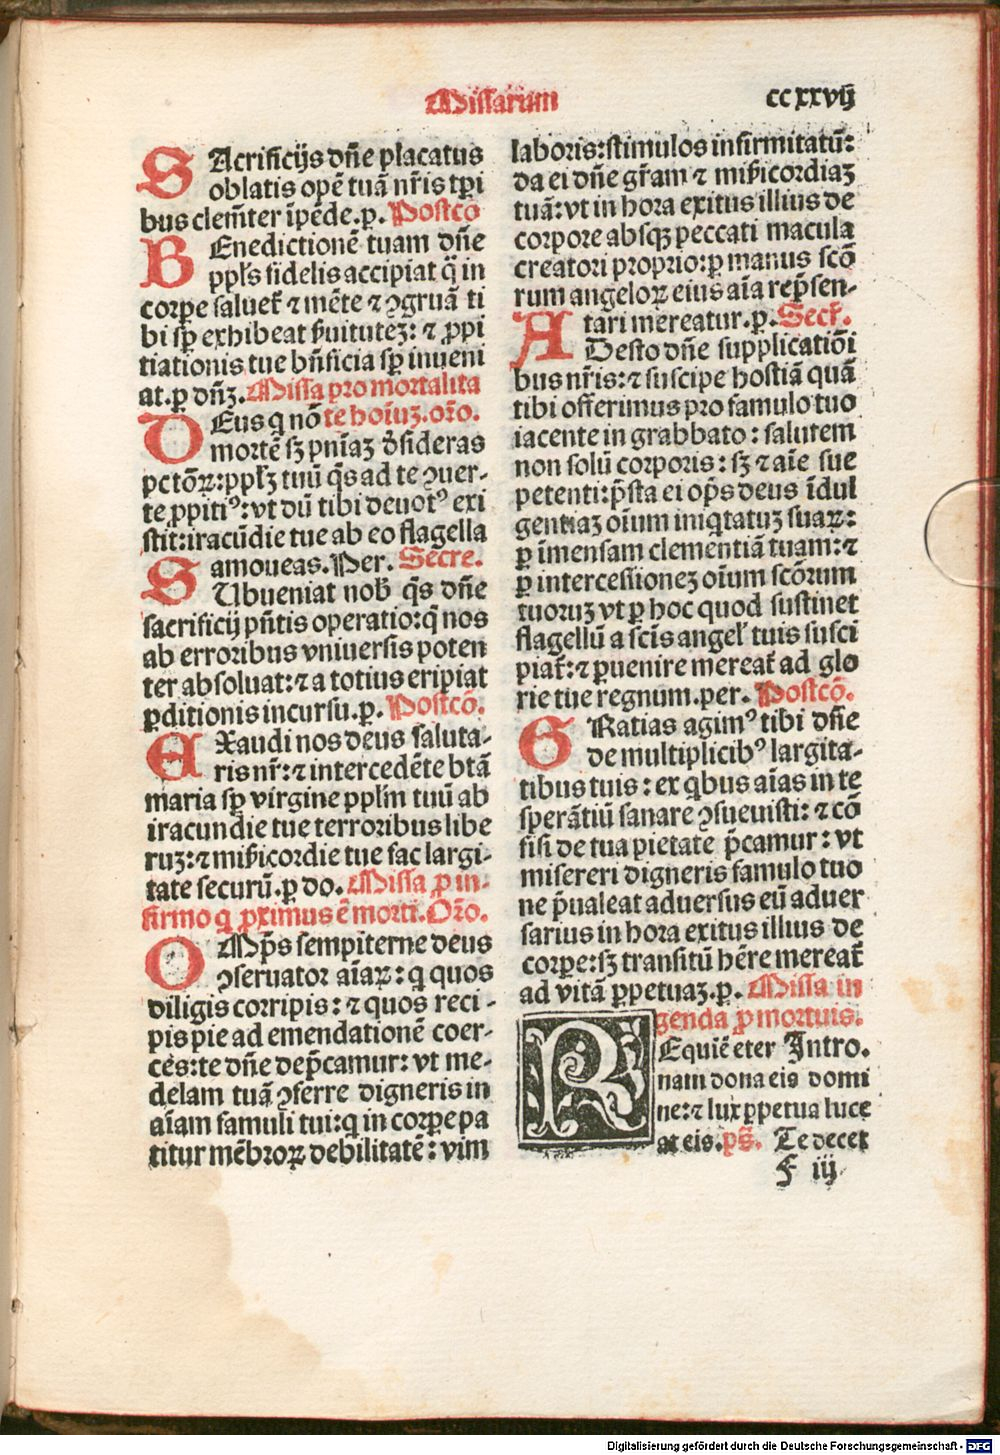 Missarum
ccxxvij
SAcrificijs dñe placatus
oblatis opẽ tuã nr̃is tp̃i
bus clem̃ter ĩpẽde.p. Postcõ
BEnedictionẽ tuam dñe
ppl's fidelis accipiat q̃ in
corpe saluet̃ ⁊ mẽte ⁊ ꝯgruã ti
bi sp̃ exhibeat ẜuitutẽꝫ: ⁊ ꝓpi
tiationis tue bñficia sp̃ inueni
at.ꝑ dñꝫ. Missa pro mortalita
DEus q nõ te hoĩuꝫ. orõ.
mortẽ sꝫ pnĩaꝫ ð̃sideras
pctõꝝ: ppl'ꝫ tuũ q̃s ad te ꝯuer-
te ꝓpitiꝰ: vt dũ tibi deuotꝰ exi
stit: iracũdie tue ab eo flagella
amoueas. Per. Secre.
SUbueniat nob̃ q̃s dñe
sacrificij pñtis operatio: q̃ nos
ab erroribus vniuersis poten
ter absoluat: ⁊ a totius eripiat
ꝑditionis incursu.ꝑ. Postcõ.
EXaudi nos deus saluta-
ris nr̃: ⁊ intercedẽte btã
maria sp̃ virgine ppl'm tuũ ab
iracundie tue terroribus libe
ruꝫ: ⁊ mi&#x0303;ẜicordie tue fac largi-
tate securũ.ꝑ do. Missa ꝓ in-
firmo q ꝓximus ẽ morti. Orõ.
OMp̃s sempiterne deus
ꝯseruator aĩaꝝ: q quos
diligis corripis: ⁊ quos reci-
pis pie ad emendationẽ coer-
ces: te dñe dep̃camur: vt me-
delam tuã ꝯferre digneris in
aĩam famuli tui: q in corpe pa
titur mẽbroꝝ debilitatẽ: vim
laboris: stimulos infirmitatũ:
da ei dñe gr̃am ⁊ mĩẜicordiaꝫ
tuã: vt in hora exitus illius de
corpore absqꝫ peccati macula
creatori proprio: ꝑ manus scõ
rum angeloꝝ eius aĩa rep̃sen-
tari mereatur.p. Secr̃.
ADesto dñe supplicatiõi
bus nr̃is: ⁊ suscipe hostiã quã
tibi offerimus pro famulo tuo
iacente in grabbato: salutem
non solũ corporis: sꝫ ⁊ aĩe sue
petenti: p̃sta ei op̃s deus ĩdul
gentiaꝫ oĩum iniqtatuꝫ suaꝝ:
ꝑ ĩmensam clementiã tuam: ⁊
ꝑ intercessioneꝫ oĩum scõrum
tuoruꝫ vt ꝑ hoc quod sustinet
flagellũ a scĩs angel' tuis susci
piat̃: ⁊ ꝑuenire mereat̃ ad glo
rie tue regnum.per. Postcõ.
GRatias agimꝰ tibi dñe
de multiplicibꝰ largita-
tibus tuis: ex qbus aĩas in te
sperãtiũ sanare ꝯsueuisti: ⁊ cõ
fisi de tua pietate p̃camur: vt
misereri digneris famulo tuo
ne p̃ualeat aduersus eũ aduer
sarius in hora exitus illius de
corpe: sꝫ transitũ hẽre mereat̃
ad vitã ꝑpetuaꝫ.ꝑ. Missa in
genda ꝓ mortuis.
REquiẽ eter Intro.
nam dona eis domi
ne: ⁊ lux ꝑpetua luce
at eis. ps̃. Te decet
F iij
Digitalisierung gefördert durch die Deutsche Forschungsgemeinschaft - DFG